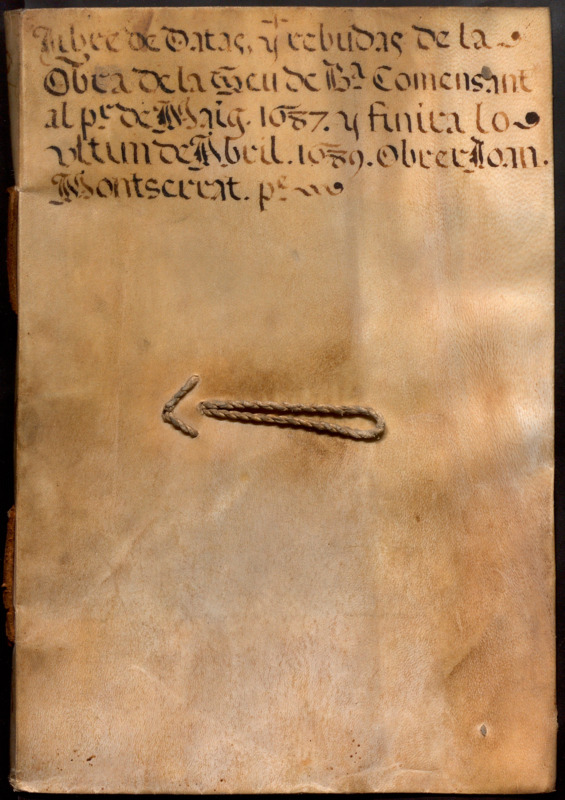 Llibre de Datas, y rebudas de la
Obra de la Seu de Bª Comensant
al pr de Maig. 1687. y finira lo
vltim de Abril. 1689. Obrer Joan.
Montserrat. pr